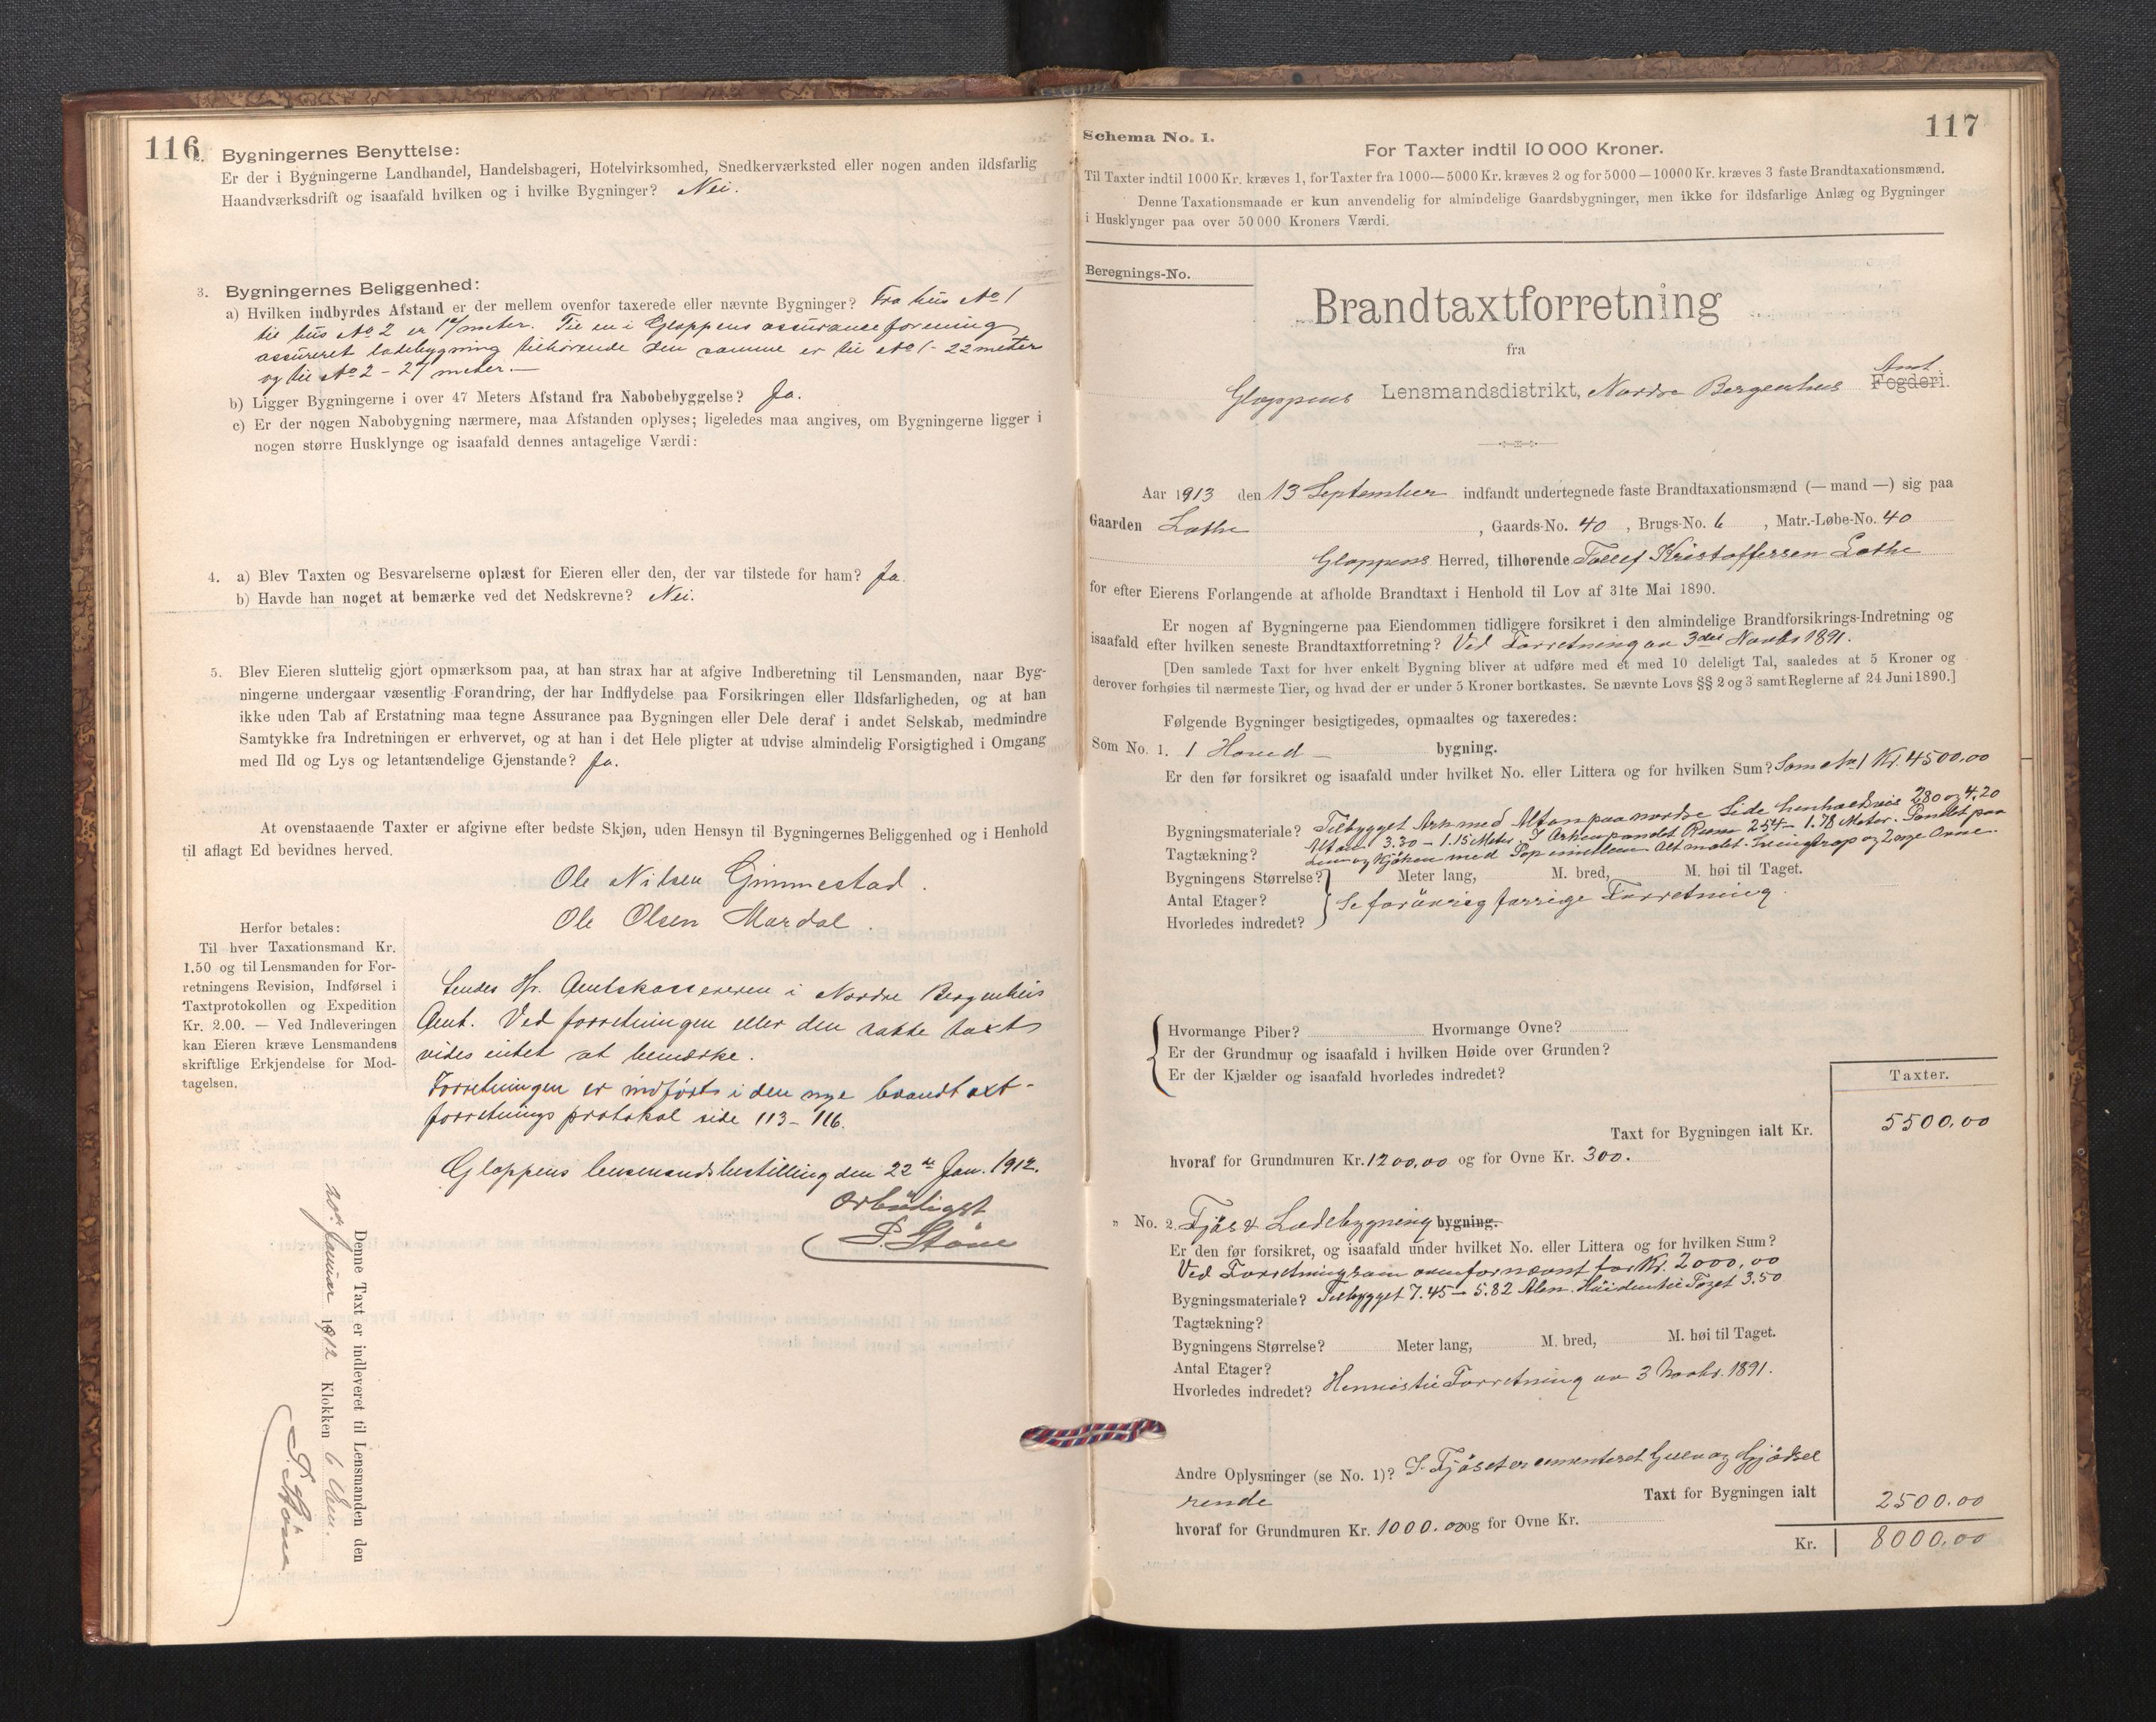 116
2. Bygningernes Benyttelse:
Er der i Bygningerne Landhandel, Handelsbageri, Hotelvirksomhed, Snedkerværksted eller nogen anden ildsfarlig
Haandværksdrift og isaafald hvilken og i hvilke Bygninger? Nei.
3. Bygningernes Beliggenhed:
a) Hvilken indbyrdes Afstand er der mellem ovenfor taxerede eller nævnte Bygninger? Fra hus No 1
til hus No 2 er meter. Til en i Gloppens assuranceforening
assureret ladebygning tilhørende den samme er til No 1 - 22 meter
og til No 2 - 27 meter. —
b) Ligger Bygningerne i over 47 Meters Afstand fra Nabobebyggelse? Ja.
c) Er der nogen Nabobygning nærmere, maa Afstanden oplyses; ligeledes maa angives, om Bygningerne ligger i
nogen større Husklynge og isaafald dennes antagelige Værdi:
4. a) Blev Taxten og Besvarelserne oplæst for Eieren eller den, der var tilstede for ham? Ja.
b) Havde han noget at bemærke ved det Nedskrevne? Nei.
5. Blev Eieren sluttelig gjort opmærksom paa, at han strax har at afgive Indberetning til Lensmanden, naar Byg-
ningerne undergaar væsentlig Forandring, der har Indflydelse paa Forsikringen eller Ildsfarligheden, og at han
ikke uden Tab af Erstatning maa tegne Assurance paa Bygningen eller Dele deraf i andet Selskab, medmindre
Samtykke fra Indretningen er erhvervet, og at han i det Hele pligter at udvise almindelig Forsigtighed i Omgang
med Ild og Lys og letantændelige Gjenstande? Ja.
At ovenstaaende Taxter er afgivne efter bedste Skjøn, uden Hensyn til Bygningernes Beliggenhed og i Henhold
til aflagt Ed bevidnes herved.
Ole Nilsen Gimmestad.
Ole Olsen Mardal.
Herfor betales:
Til hver Taxationsmand Kr.
1.50 og til Lensmanden for For-
retningens Revision, Indførsel i
Taxtprotokollen og Expedition
Kr. 2.00. — Ved Indleveringen
kan Eieren kræve Lensmandens
skriftlige Erkjendelse for Mod-
tagelsen.
Sendes Hr. Amtskassereren i Nordre Bergenhus
Amt. Ved forretningen eller den satte taxt
vides intet at bemærke.
Forretningen er indført i den nye brandtaxt-
forretnings protokol side 113 - 116.
Gloppens lensmandsbestilling den 22de Jan. 1912.
Ærbødigst
P. Støne
Denne Taxt er indleveret til Lensmanden den
20de Januar 1912 Klokken 6 Em.
P. Støne
117
Schema No. 1.
For Taxter indtil 10 000 Kroner.
Til Taxter indtil 1000 Kr. kræves 1, for Taxter fra 1000—5000 Kr. kræves 2 og for 5000—10000 Kr. kræves 3 faste Brandtaxationsmænd.
Denne Taxationsmaade er kun anvendelig for almindelige Gaardsbygninger, men ikke for ildsfarlige Anlæg og Bygninger
i Husklynger paa over 50 000 Kroners Værdi.
Beregnings-No.
Brandtaxtforretning
fra
Gloppens Lensmandsdistrikt, Nordre Bergenhus Amt Fogderi.
Aar 1913 den 13 September indfandt undertegnede faste Brandtaxationsmænd (— mand —) sig paa
Gaarden Lothe, Gaards-No. 40, Brugs-No. 6, Matr.-Løbe-No. 40
Gloppens Herred, tilhørende Tollef Kristoffersen Lothe
for efter Eierens Forlangende at afholde Brandtaxt i Henhold til Lov af 31te Mai 1890.
Er nogen af Bygningerne paa Eiendommen tidligere forsikret i den almindelige Brandforsikrings-Indretning og
isaafald efter hvilken seneste Brandtaxtforretning? Ved Forretning av 3die Novbr 1891.
[Den samlede Taxt for hver enkelt Bygning bliver at udføre med ét med 10 deleligt Tal, saaledes at 5 Kroner og
derover forhøies til nærmeste Tier, og hvad der er under 5 Kroner bortkastes. Se nævnte Lovs §§ 2 og 3 samt Reglerne af 24 Juni 1890.]
Følgende Bygninger besigtigedes, opmaaltes og taxeredes:
Som No. 1. 1 Hoved - bygning.
Er den før forsikret og isaafald under hvilket No. eller Littera og for hvilken Sum? Som No 1 Kr. 4500.00
Bygningsmateriale? Tilbygget Ark med Altan paa nordre Side henholdsvis 2.80 og 4.20
Tagtækning? Altan 3.30 - 1.15 Meter. I Arken pandet Rum 2.54 - 1.78 Meter. Pandet paa
og Kjøken med Alt malet. og 2 nye Ovne.
Bygningens Størrelse? Meter lang, M. bred, M. høi til Taget.
Antal Etager? Se forøvrig forrige Forretning.
Hvorledes indredet?
Hvormange Piber? Hvormange Ovne?
Er der Grundmur og isaafald i hvilken Høide over Grunden?
Er der Kjælder og isaafald hvorledes indredet?
Taxter.
Taxt for Bygningen ialt Kr. 5500.00
hvoraf for Grundmuren Kr. 1200.00 og for Ovne Kr. 300.
" No. 2. Fjøs & Ladebygning bygning.
Er den før forsikret, og isaafald under hvilket No. eller Littera og for hvilken Sum?
Ved Forretning som ovenfor nævnt for Kr. 2000.00
Bygningsmateriale? Tilbygget 7.45 - 5.82 Alen. Høiden til Taget 3.50
Tagtækning?
Bygningens Størrelse? Meter lang, M. bred, M. høi til Taget.
Antal Etager?
Hvorledes indredet? Henvises til Forretning av 3 Novbr. 1891.
Andre Oplysninger (se No. 1)? I Fjøset er cementeret Gulv og Gjødsel
rende
Taxt for Bygningen ialt 2500.00
hvoraf for Grundmuren Kr. 1000.00 og for Ovne Kr.
Kr. 8000.00